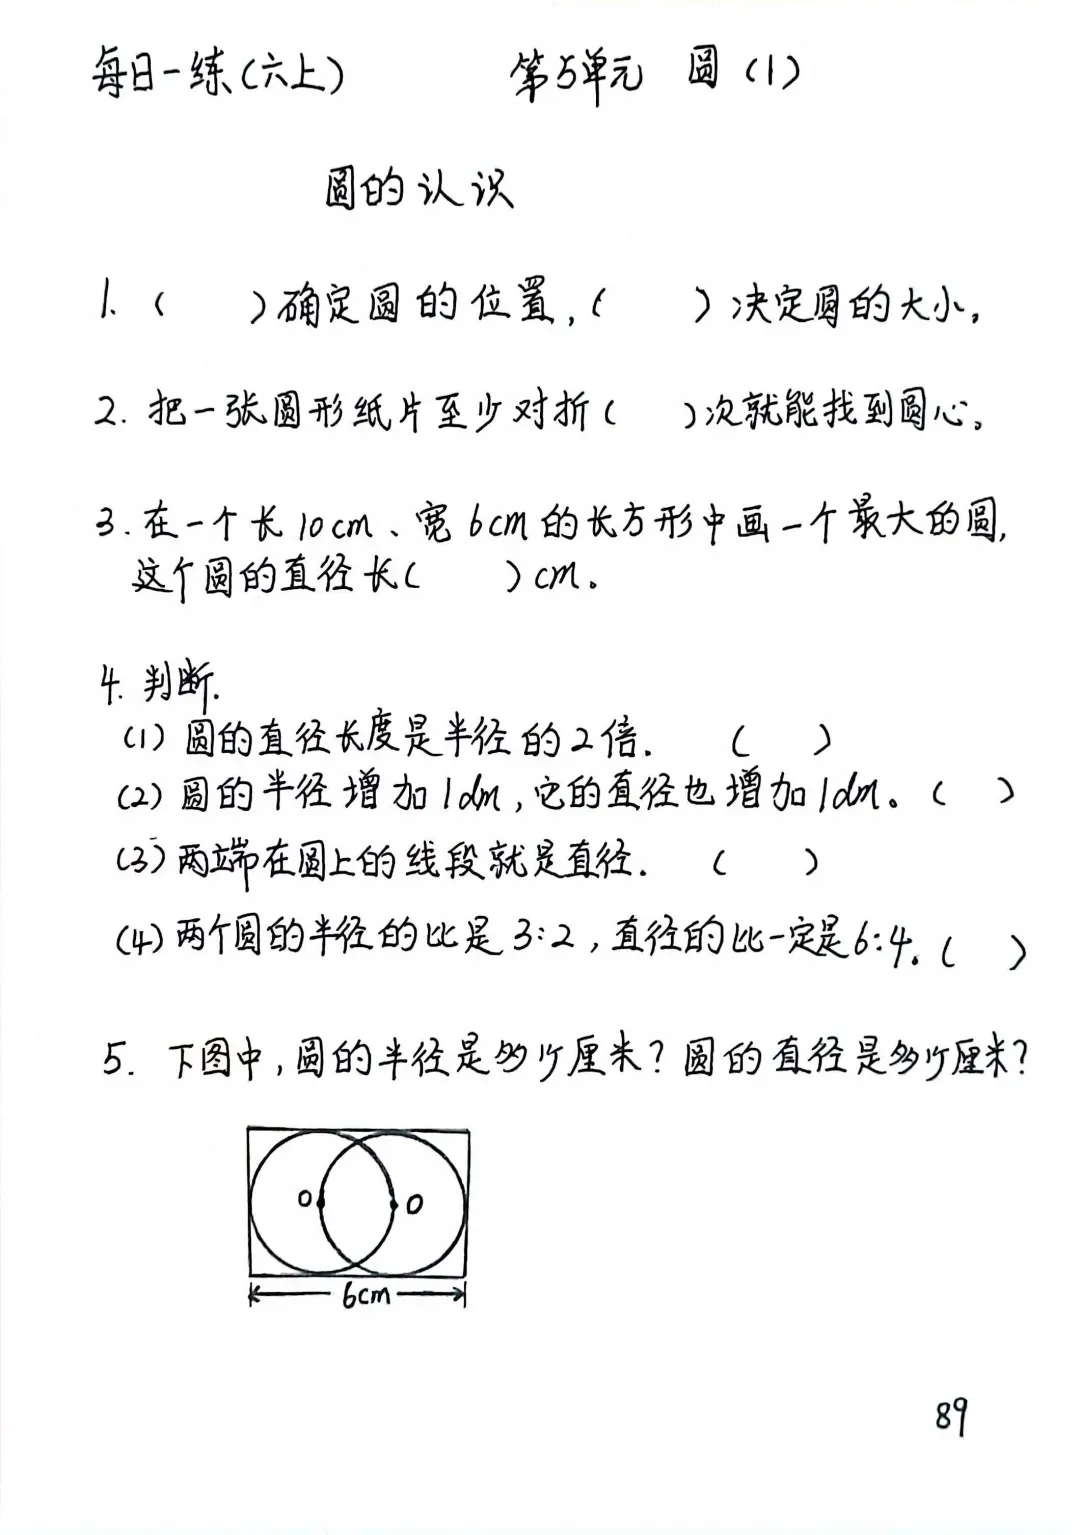 每日一练(六上) 第5单元 圆(1)
圆的认识
1.( )确定圆的位置,( )决定圆的大小。
2.把一张圆形纸片至少对折( )次就能找到圆心。
3.在一个长10cm、宽6cm的长方形中画一个最大的圆,
这个圆的直径长( )cm。
4.判断.
(1)圆的直径长度是半径的2倍. ( )
(2)圆的半径增加1dm,它的直径也增加1dm。( )
(3)两端在圆上的线段就是直径. ( )
(4)两个圆的半径的比是3:2,直径的比一定是6:4。( )
5.下图中,圆的半径是多少厘米?圆的直径是多少厘米?
O O
6cm
89